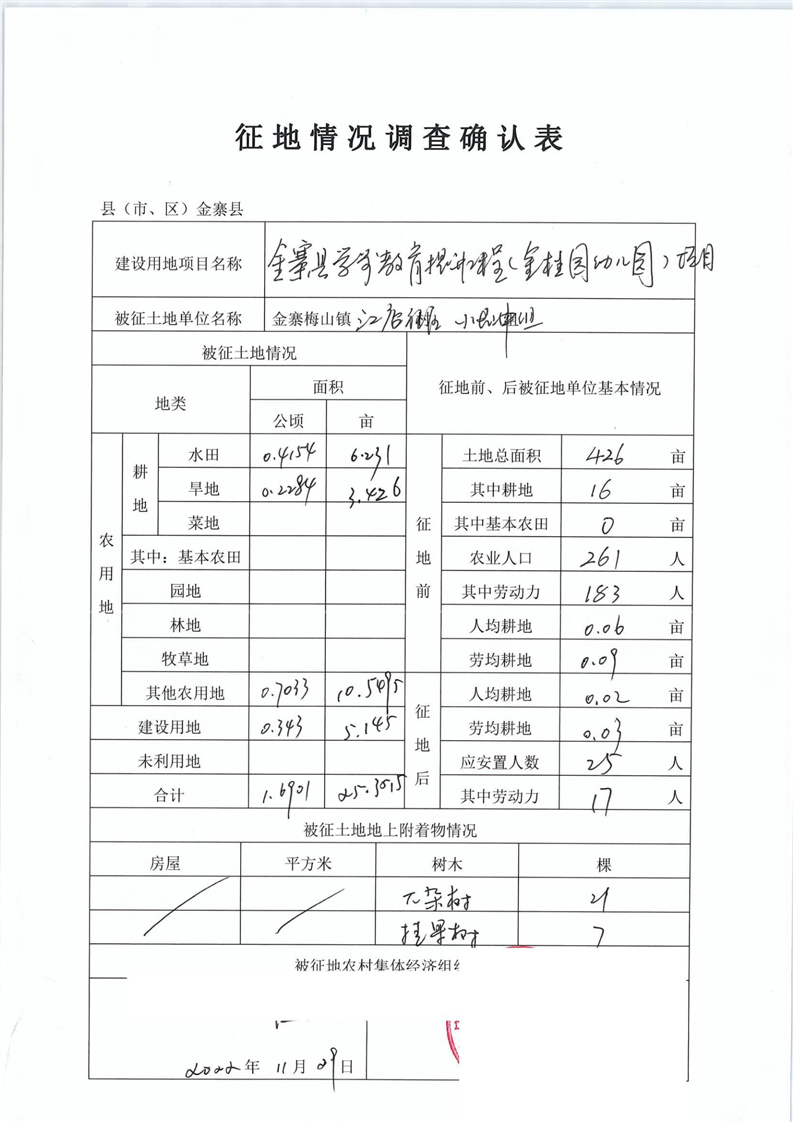 征地情况调查确认表
县（市、区）金寨县
建设用地项目名称 金寨县学前教育提升工程（金桂园幼儿园）项目
被征土地单位名称 金寨梅山镇 江店 组
被征土地情况 征地前、后被征地单位基本情况
地类 面积
公顷 亩
农用地 耕地 水田 0.4154 6.231 征地前 土地总面积 426 亩
旱地 0.2284 3.426 其中耕地 16 亩
菜地 其中基本农田 0 亩
其中：基本农田 农业人口 261 人
园地 其中劳动力 183 人
林地 人均耕地 0.06 亩
牧草地 劳均耕地 0.09 亩
其他农用地 0.7033 10.5495 征地后 人均耕地 0.02 亩
建设用地 0.343 5.145 劳均耕地 0.03 亩
未利用地 应安置人数 25 人
合计 1.6901 25.3515 其中劳动力 17 人
被征土地地上附着物情况
房屋 平方米 树木 棵
杂树 21
挂果树 7
被征地农村集体经济组
2022年 11月29日